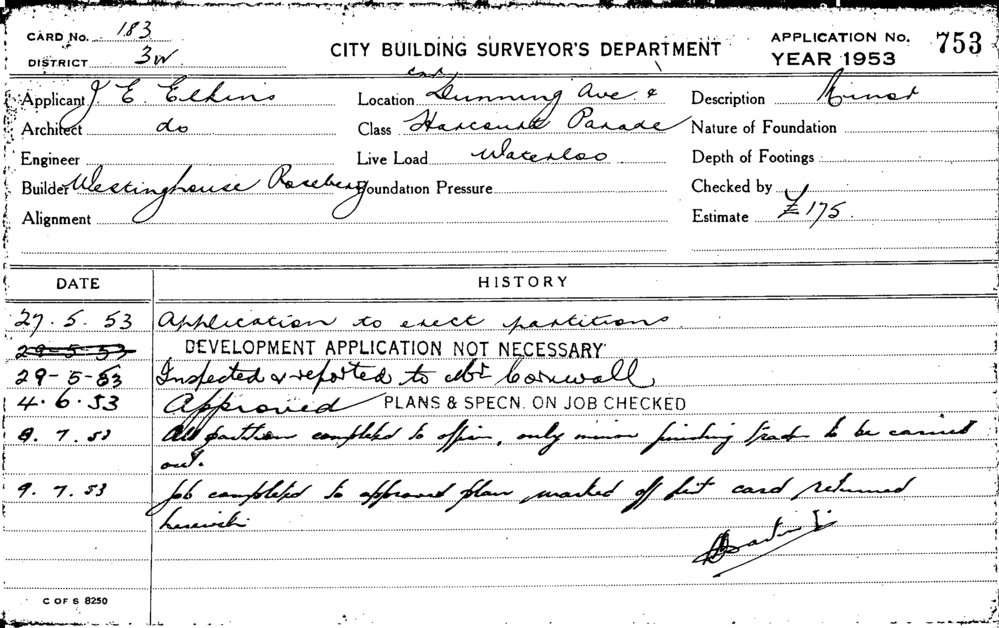 CARD No. 183
DISTRICT 3W
CITY BUILDING SURVEYOR'S DEPARTMENT
APPLICATION No. 753
YEAR 1953
Applicant J E Elkins
Location Cnr Dunning Ave &
Description Minor
Architect do
Class Harcourt Parade
Nature of Foundation
Engineer
Live Load Waterloo
Depth of Footings
Builder Westinghouse Rosebery
Foundation Pressure
Checked by
Alignment
Estimate £175.
DATE HISTORY
27.5.53 Application to erect partitions
29-5-53 DEVELOPMENT APPLICATION NOT NECESSARY
29-5-53 Inspected & reported to Mr Cornwall
4.6.53 Approved PLANS & SPECN. ON JOB CHECKED
8.7.53 All partition completed to offices, only minor finishing trades to be carried
out.
9.7.53 Job completed to approved plan, marked off list card returned
herewith
C OF S 8250